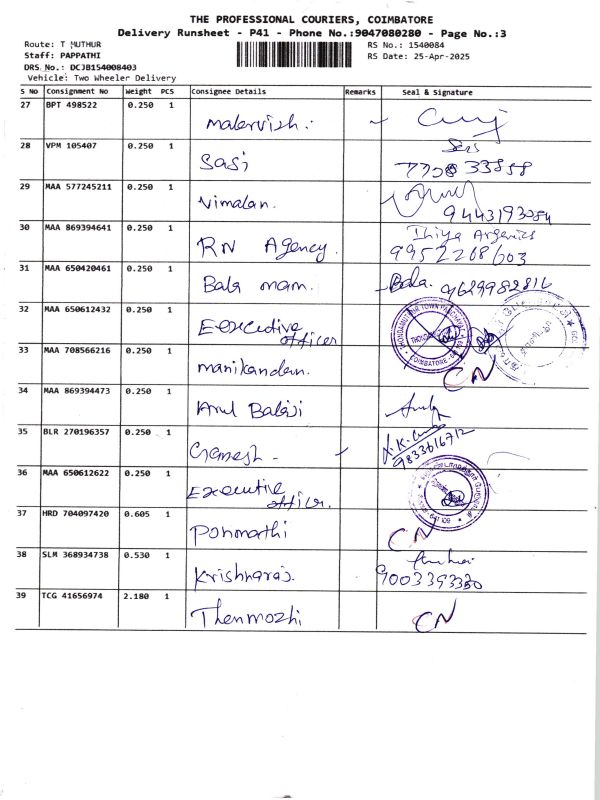 THE PROFESSIONAL COURIERS, COIMBATORE
Delivery Runsheet - P41 - Phone No.:9047080280 - Page No.:3
Route: T MUTHUR
RS No.: 1540084
Staff: PAPPATHI
RS Date: 25-Apr-2025
DRS No.: DCJB154008403
Vehicle: Two Wheeler Delivery
S No Consignment No Weight PCS Consignee Details Remarks Seal & Signature
27 BPT 498522 0.250 1
28 VPM 105407 0.250 1 Sasi
29 MAA 577245211 0.250 1 Nimalan.
30 MAA 869394641 0.250 1 RN Agency.
31 MAA 650420461 0.250 1 Bala mam. Bala. 9629982816
32 MAA 650612432 0.250 1 Executive officer
33 MAA 708566216 0.250 1 manikandan. CN
34 MAA 869394473 0.250 1 Arul Balaji
35 BLR 270196357 0.250 1 Ganesh - 9833616712
36 MAA 650612622 0.250 1 Executive officer.
37 HRD 704097420 0.605 1 Ponmathi CN
38 SLM 368934738 0.530 1 Krishnaraj. 9003393330
39 TCG 41656974 2.180 1 Thenmozhi CN